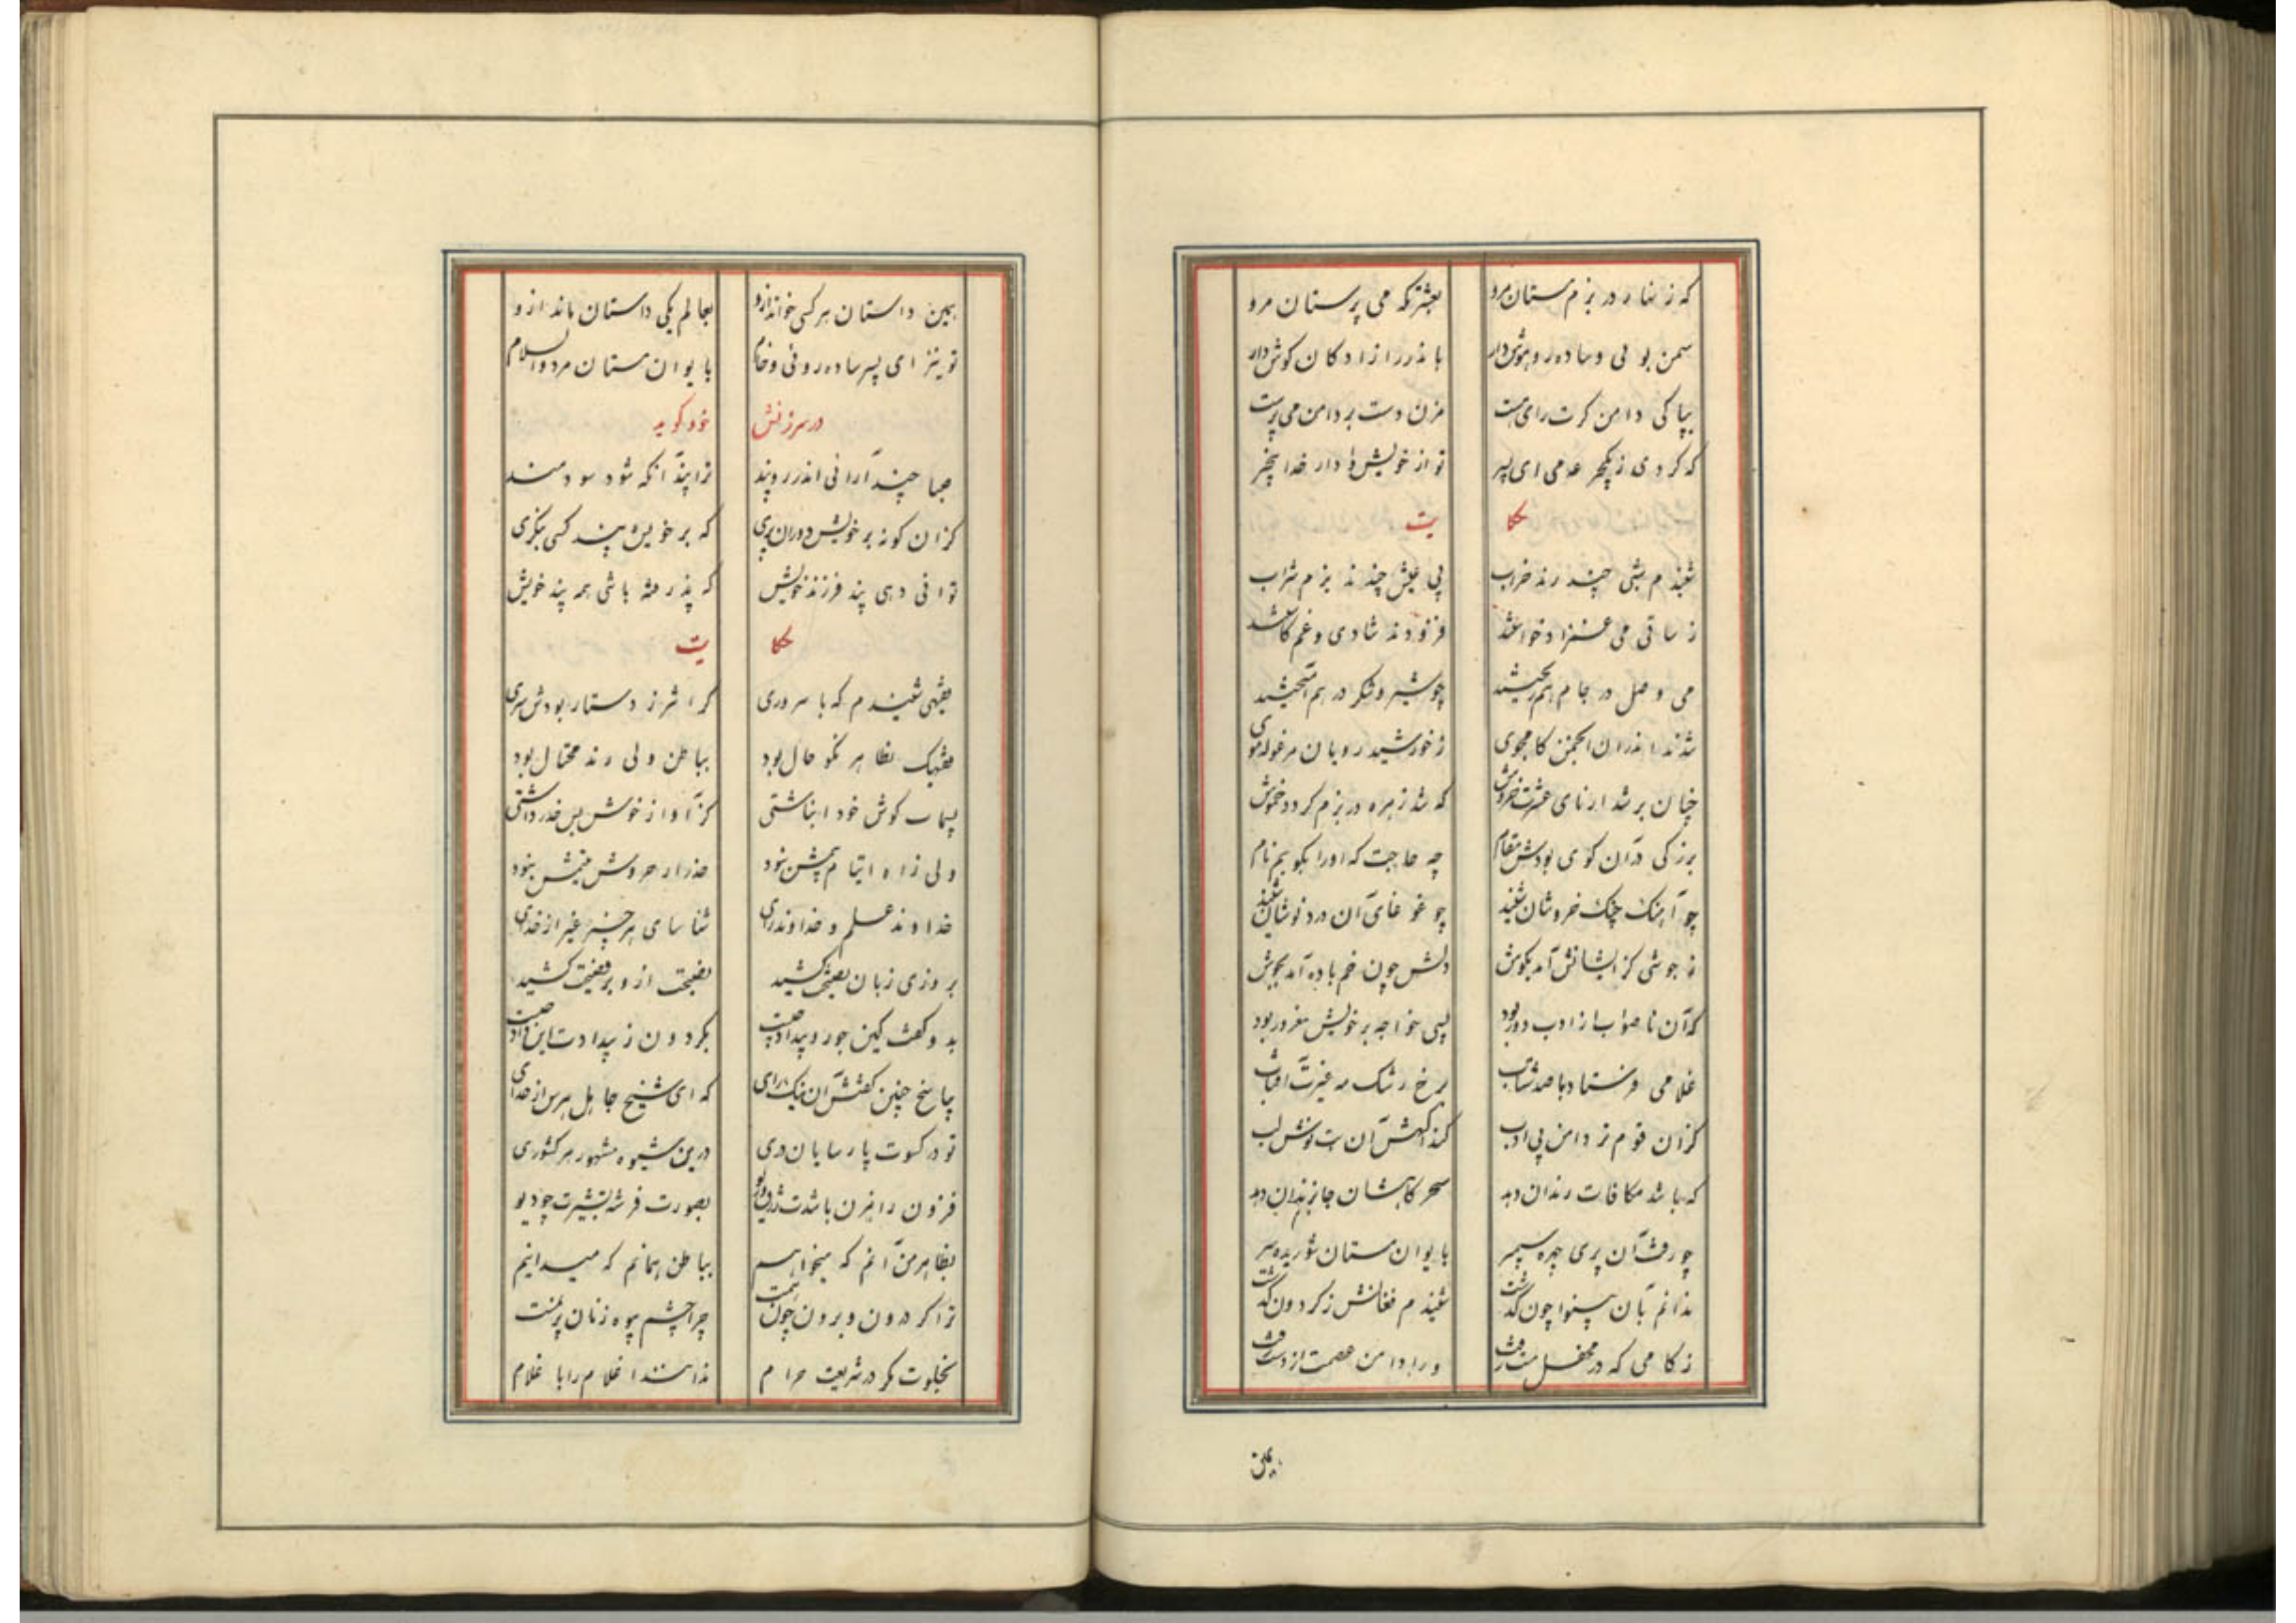 که زنهار در بزم مستان مرو بعشرتگه می پرستان مرو
سمن بوئی و ساده رو هوش دار باندرز آزادگان گوش دار
بپاکی دامن گرت رای هست مزن دست بر دامن می پرست
که گردی ز یکجرعه می ای پسر تو از خویش و دادار خدا بیخبر
حکایت
شنیدم شبی چند رند خراب پی عیش چیدند بزم شراب
ز ساقی می عشرت زا خواستند فزودند شادی و غم کاستند
می وصل در جام هم ریختند چو شیر و شکر در هم آمیختند
شدند اندران انجمن کامجوی ز خورشید رویان مرغوله موی
چنان بر شد از نای عشرت خروش که شد زهره در بزم گردون خموش
بزرگی در آن کوی بودش مقام چه حاجت که او را بگویم نام
چو آهنگ چنگ خروشان شنید چو غوغای آن درد نوشان شنید
ز جوشی کز ایشانش آمد بگوش دلش چون خم باده آمد بجوش
که آن ناصواب از ادب دور بود بسی خواجه بر خویش مغرور بود
غلامی فرستاد با صد شتاب برخ رشک مه غیرت آفتاب
کزان قوم تر دامن بی ادب کند آگهش آن بت نوش لب
که باشد مکافات رندان دهد سحرگاهشان جا بزندان دهد
چو رفت آن پری چهره سیمبر بایوان مستان شوریده سر
ندانم بآن بینوا چون گذشت شنیدم فغانش ز گردون گذشت
ز کامی که در محفل مست رفت ورا دامن عصمت از دست رفت
همین
همین داستان هر کسی خواند ازو بعالم یکی داستان ماند ازو
تو نیز ای پسر ساده روئی و خام بایوان مستان مرو والسلام
در سرزنش خود گوید
صبا چند آرائی اندرز و پند ترا پند آنکه شود سودمند
کزان گونه بر خویش دوران بری که بر خویش پند کسی بنگری
توانی دهی پند فرزند خویش که پذرفته باشی همه پند خویش
حکایت
فقیهی شنیدم که با سروری گرانتر ز دستار بودش سری
فقیهک بظاهر نکو حال بود بباطن ولی رند محتال بود
بسیماب گوش خود انباشتی کز آواز خوش بس حذر داشتی
ولی ز آه ایتام بیمش نبود حذر از خروش منیش نبود
خداوند علم و خداوند رای شناسای هر چیز غیر از خدای
بروزی زبان نصیحت کشید نصیحت ازو بر فضیحت کشید
بدو گفت کین جور و بیداد چیست بگردون ز بیدادت این داد چیست
بپاسخ چنین گفتش آن نیک رای که ای شیخ جاهل بترس از خدای
تو در کسوت پارسایان دری درین شیوه مشهور هر کشوری
فزون راهزن باشدت زرق و ریو بصورت فرشته بسیرت چو دیو
بظاهر من آنم که میخوانیم بباطن همانم که میدانیم
ترا گر درون و برون چون همست چرا چشم بیوه زنان پر نمست
بخلوت مگر در شریعت حرام ندانستند اغلام را با غلام